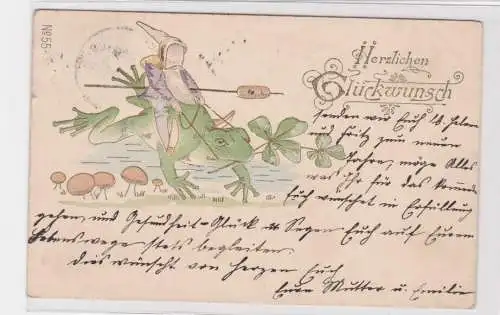 No 55
Herzlichen
Glückwunsch
senden wir Euch l. Helene
und Fritz zum neuen
Jahre, möge Alles
was Ihr für das kommende
Euch wünschet in Erfüllung
gehen, und Gesundheit - Glück u Segen Euch auf Eurem
Lebenswege stets begleiten.
Dies wünscht von Herzen Euch
Eure Mutter u. Emilie